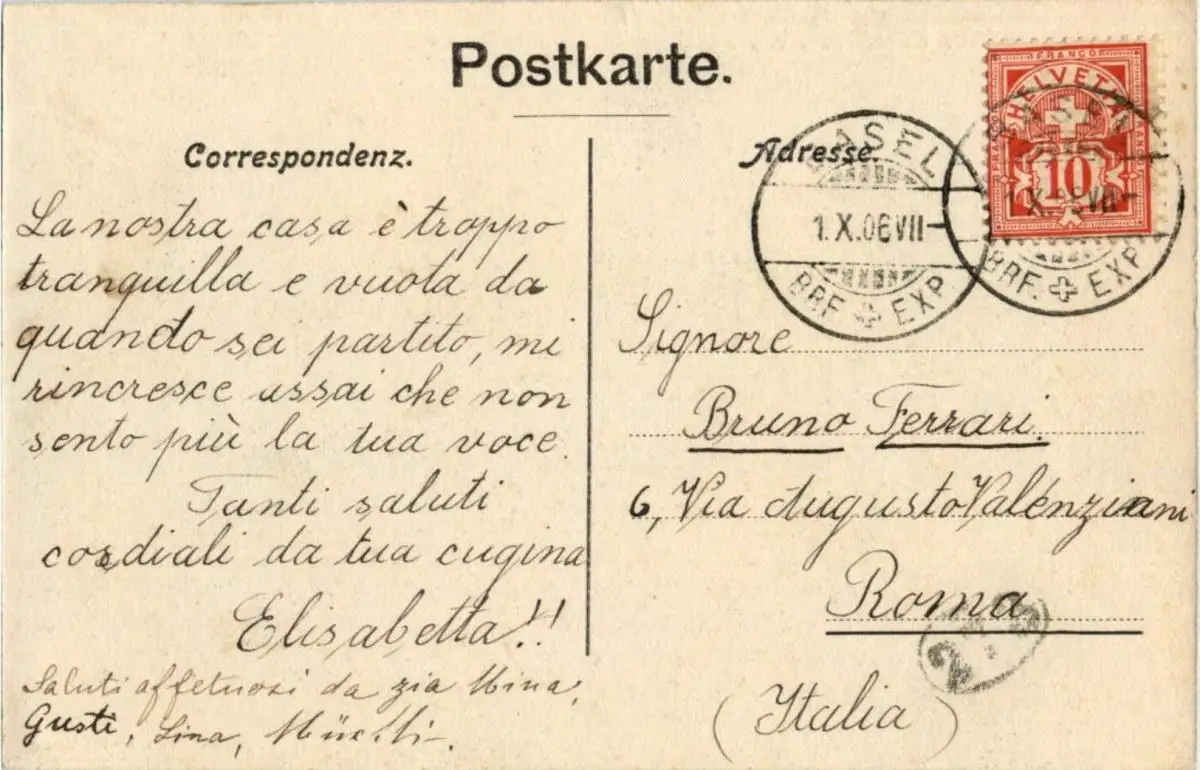 Postkarte.
Correspondenz.
La nostra casa è troppo
tranquilla e vuota da
quando sei partito, mi
rincresce assai che non
sento più la tua voce.
Tanti saluti
cordiali da tua cugina
Elisabetta!!
Saluti affetuosi da zia Mina,
Gusti, Lina,
Adresse.
BASEL
1.X.06VII-
BRF. EXP.
FRANCO
HELVETIA
10
BASEL
X.06VII-
BRF. EXP.
Signore
Bruno Ferrari.
6, Via Augusto Valénziani
Roma
(Italia)